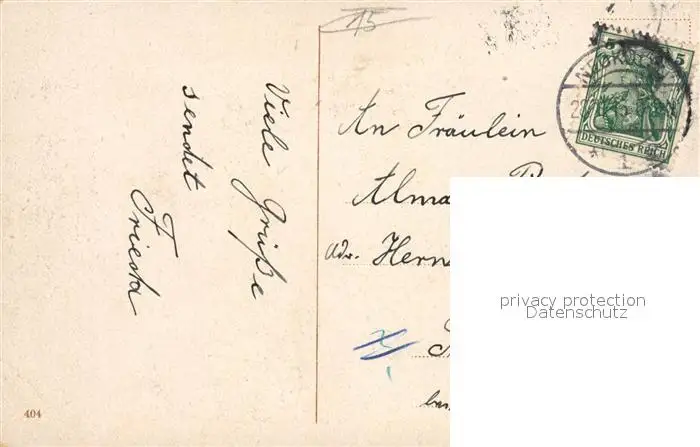 15
Viele Grüße
sendet
Frieda
An Fräulein
Alma
Adr.
5 5
DEUTSCHES REICH
404
privacy protection
Datenschutz